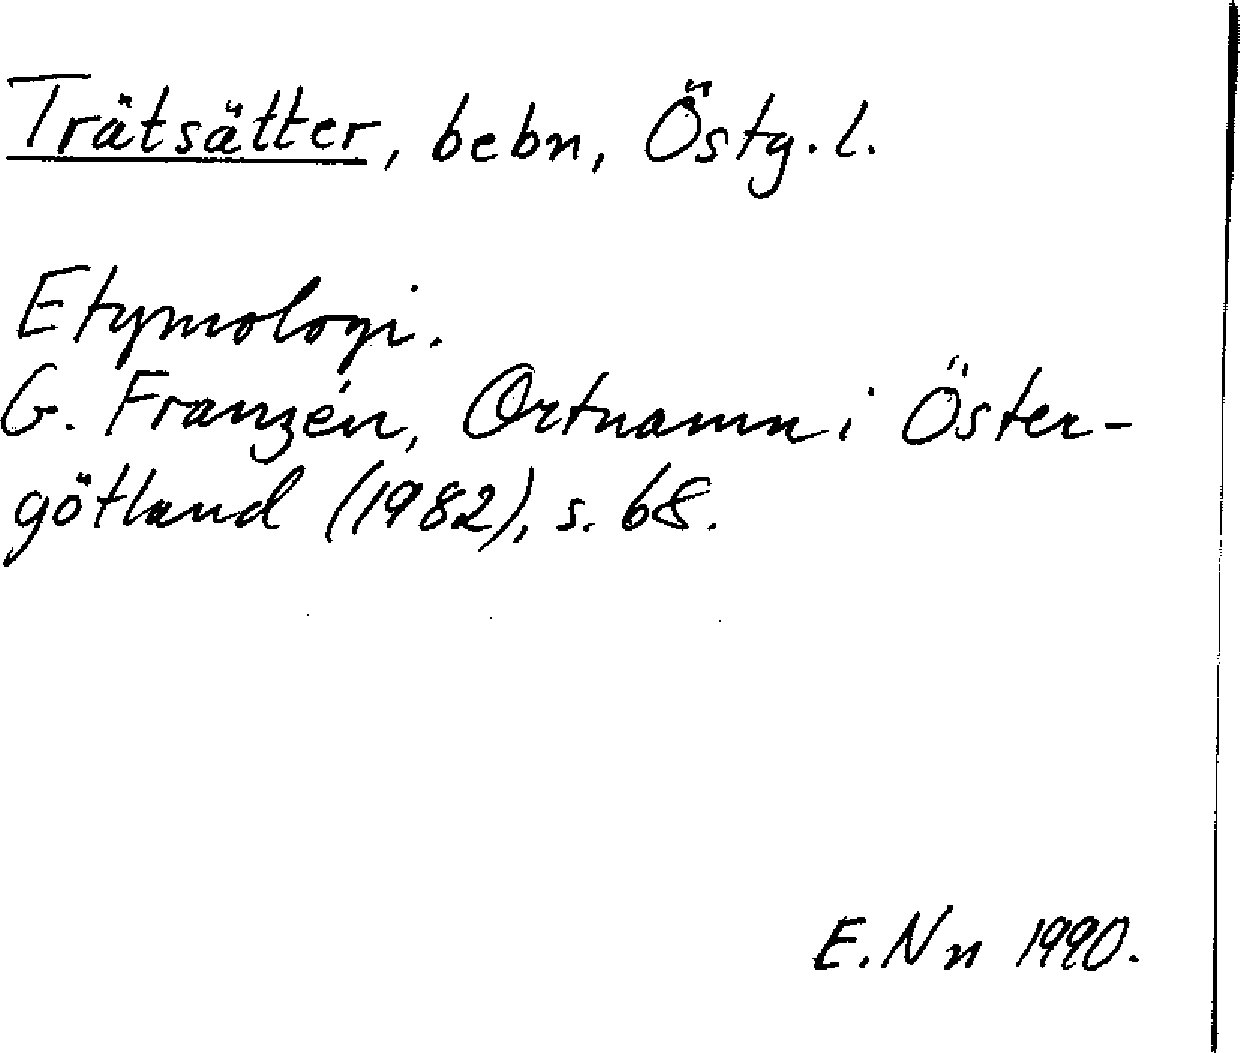 Trätsätter, bebn, Östg. l.
Etymologi.
G. Franzén, Ortnamn i Öster-
götland (1982), s. 68.
E. Nn 1990.